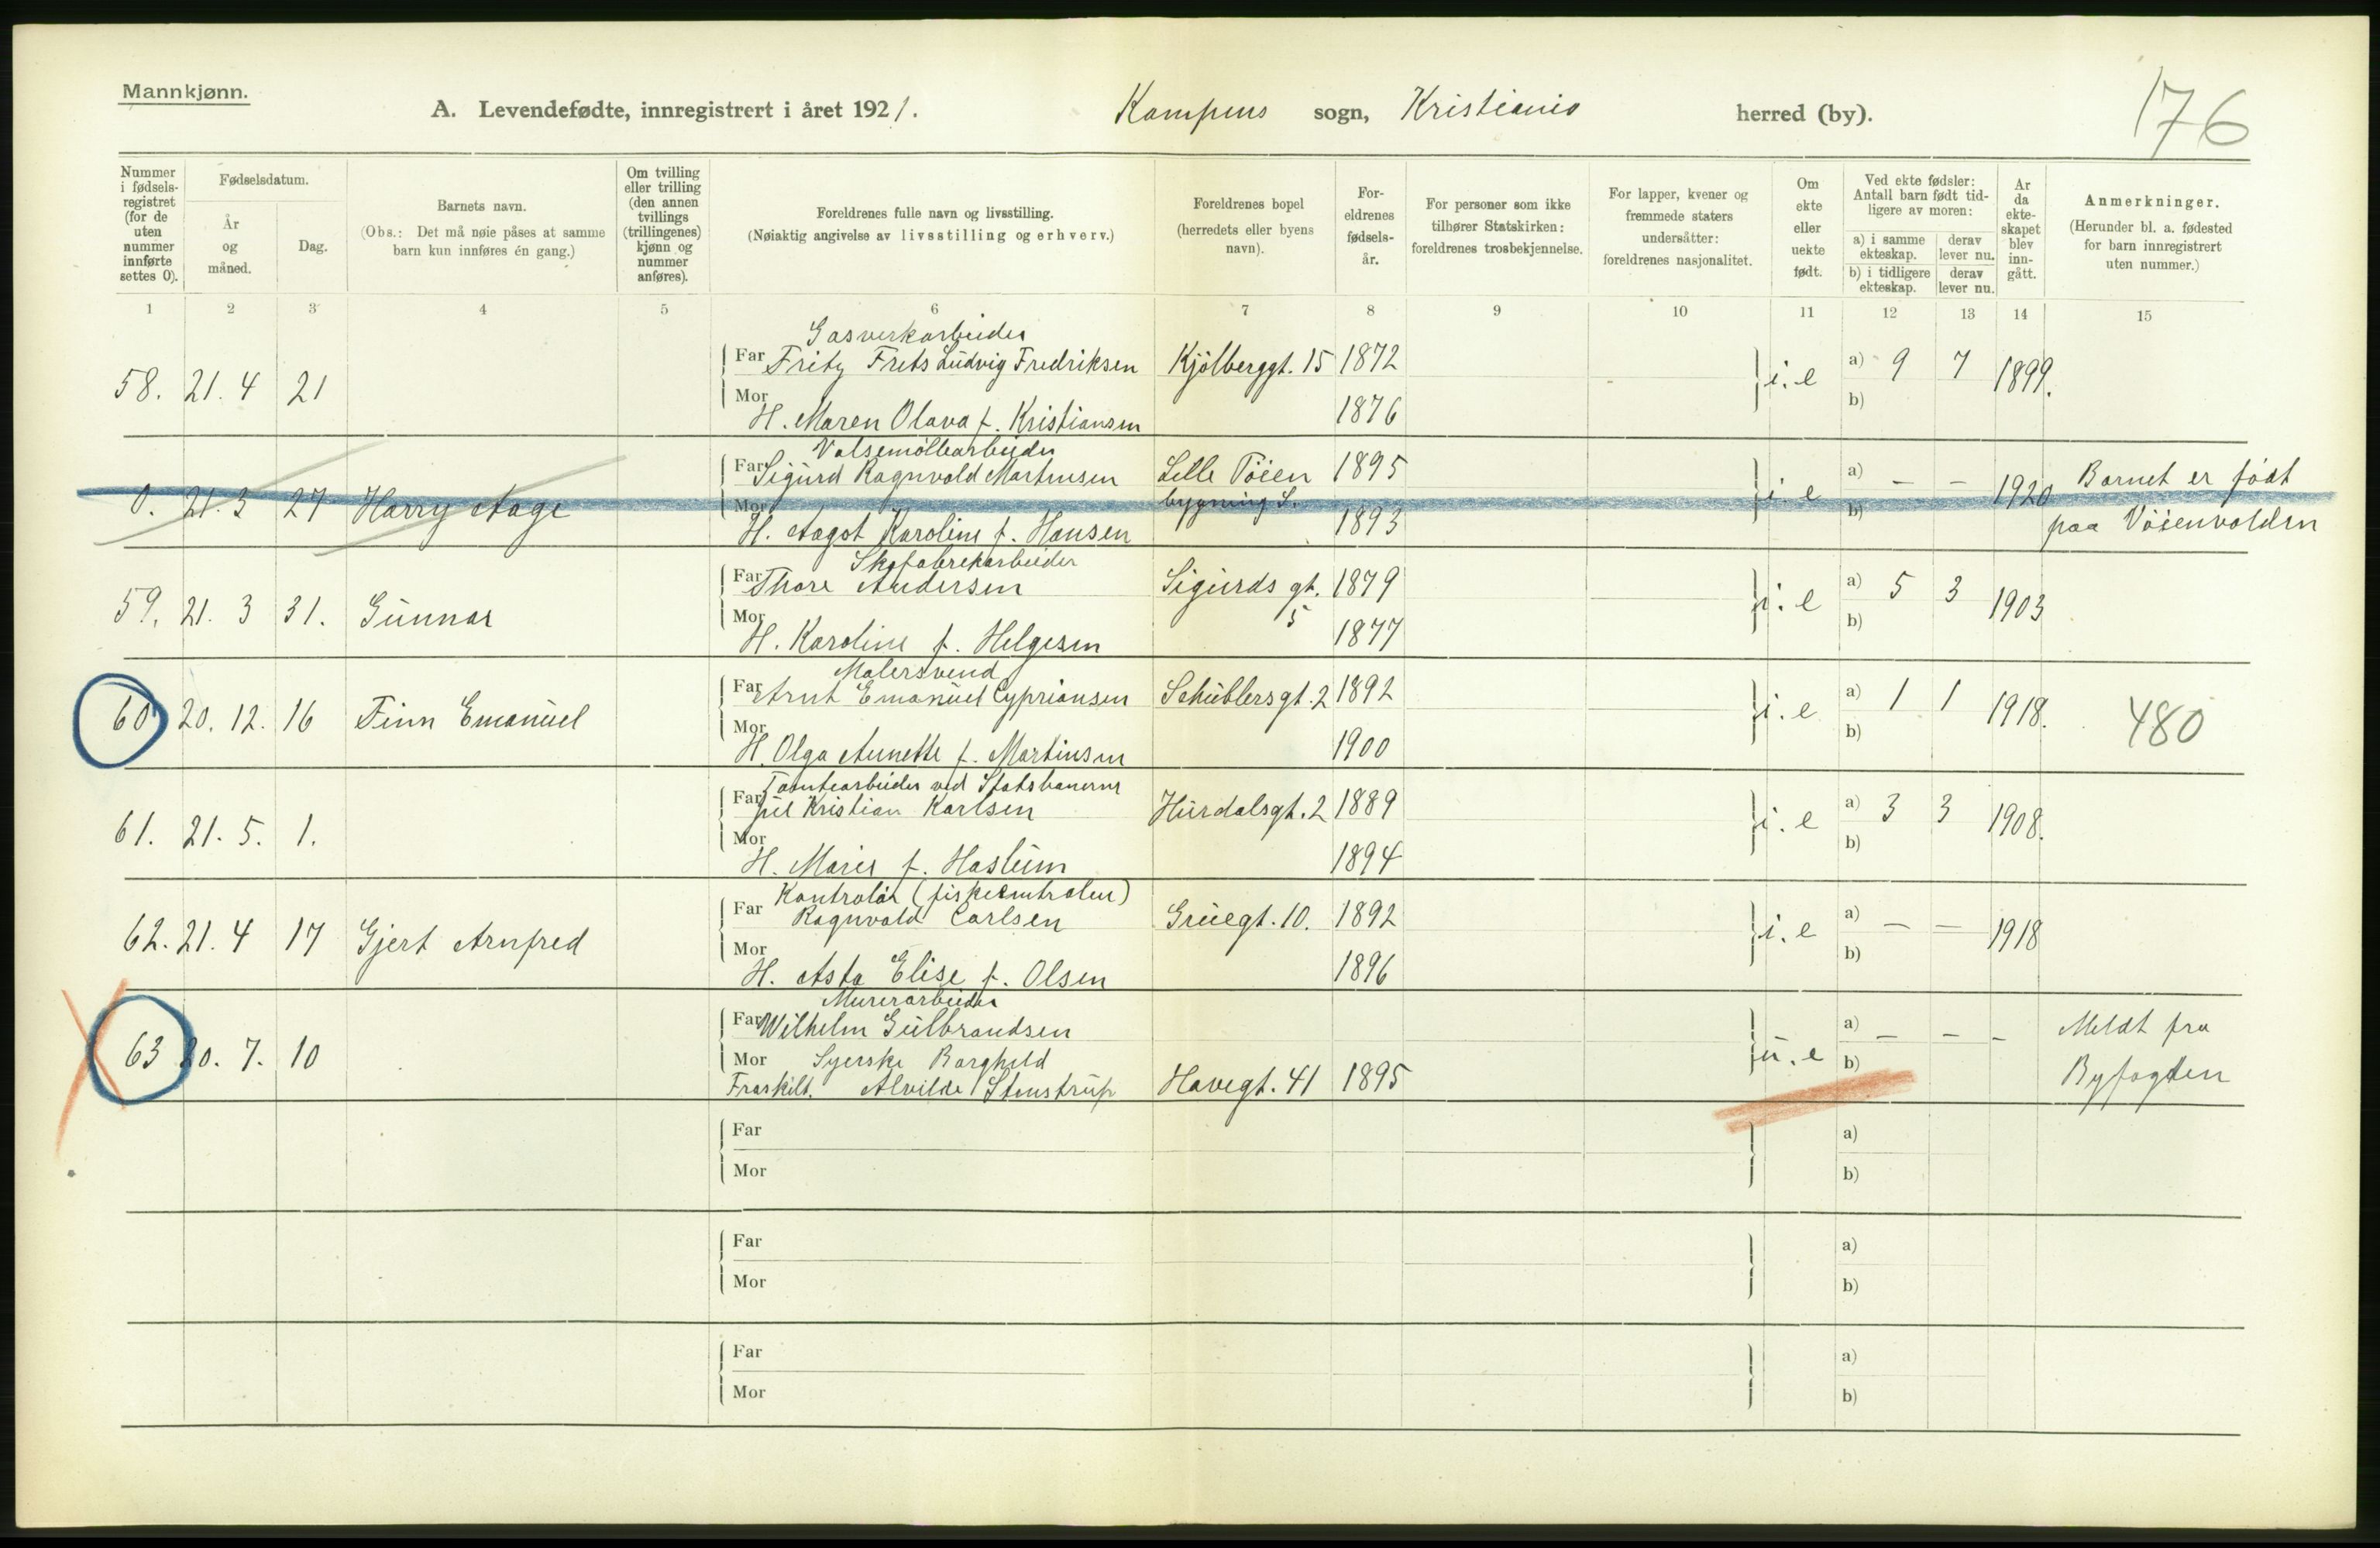 Mannkjønn.
A. Levendefødte, innregistrert i året 1921. Kampens sogn, Kristiania herred (by).
176
Nummer i fødsels-registret (for de uten nummer innførte settes 0).
Fødselsdatum.
År og måned.
Dag.
Barnets navn.
(Obs.: Det må nøie påses at samme barn kun innføres én gang.)
Om tvilling eller trilling (den annen tvillings (trillingenes) kjønn og nummer anføres).
Foreldrenes fulle navn og livsstilling.
(Nøiaktig angivelse av livsstilling og erhverv.)
Foreldrenes bopel (herredets eller byens navn).
For-eldrenes fødsels-år.
For personer som ikke tilhører Statskirken: foreldrenes trosbekjennelse.
For lapper, kvener og fremmede staters undersåtter: foreldrenes nasjonalitet.
Om ekte eller uekte født.
Ved ekte fødsler: Antall barn født tid-ligere av moren:
a) i samme ekteskap. derav lever nu.
b) i tidligere ekteskap. derav lever nu.
År da ekte-skapet blev inn-gått.
Anmerkninger.
(Herunder bl. a. fødested for barn innregistrert uten nummer.)
1 2 3 4 5 6 7 8 9 10 11 12 13 14 15
Gasverkarbeider
Far Fritz Frits Ludvig Fredriksen Kjølberggt. 15 1872 a) 9 7
58. 21. 4 21 i. e 1899.
Mor H. Maren Olava f. Kristiansen 1876 b)
Valsemøllearbeider
Far Sigurd Ragnvald Martinsen Lille Tøien 1895 a) — — Barnet er født
0. 21. 3 27 Harry Aage bygning S. i e 1920
Mor H. Aagot Karoline f. Hansen 1893 b) paa Vøienvolden
Skofabrikarbeider
Far Thore Andersen Sigurds gt. 1879 a) 5 3
59. 21. 3 31. Gunnar 5 i. e 1903
Mor H. Karoline f. Helgesen 1877 b)
Malersvend
Far Arnt Emanuel Cypriansen Schüblersgt. 2 1892 a) 1 1
60 20. 12. 16 Finn Emanuel i. e 1918. 480
Mor H. Olga Annette f. Martinsen 1900 b)
Tomtearbeider ved Statsbanerne
Far Juel Kristian Karlsen Hurdalsgt. 2 1889 a) 3 3
61. 21. 5. 1. i. e 1908.
Mor H. Marie f. Haslum 1894 b)
Kontrolør (fiskecentralen)
Far Ragnvald Carlsen Gruegt. 10. 1892 a) — —
62. 21. 4 17 Gjert Arnfred i. e 1918
Mor H. Asta Elise f. Olsen 1896 b)
Murerarbeider
Far Wilhelm Gulbrandsen a) — — — Meldt fra
63 20. 7. 10 u. e
Mor Syerske Borghild b) Byfogden
Fraskilt. Alvilde Stenstrup Havegt. 41 1895
Far a)
Mor b)
Far a)
Mor b)
Far a)
Mor b)